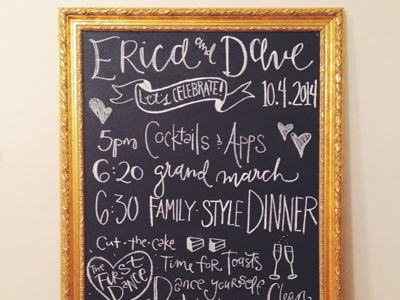 Erica and Dave
Let's CELEBRATE!
10.4.2014
5pm Cocktails & Apps
6:20 grand march
6:30 FAMILY-STYLE DINNER
Cut-the-cake
The First Dance
Time for Toasts
Dance yourself
Clean